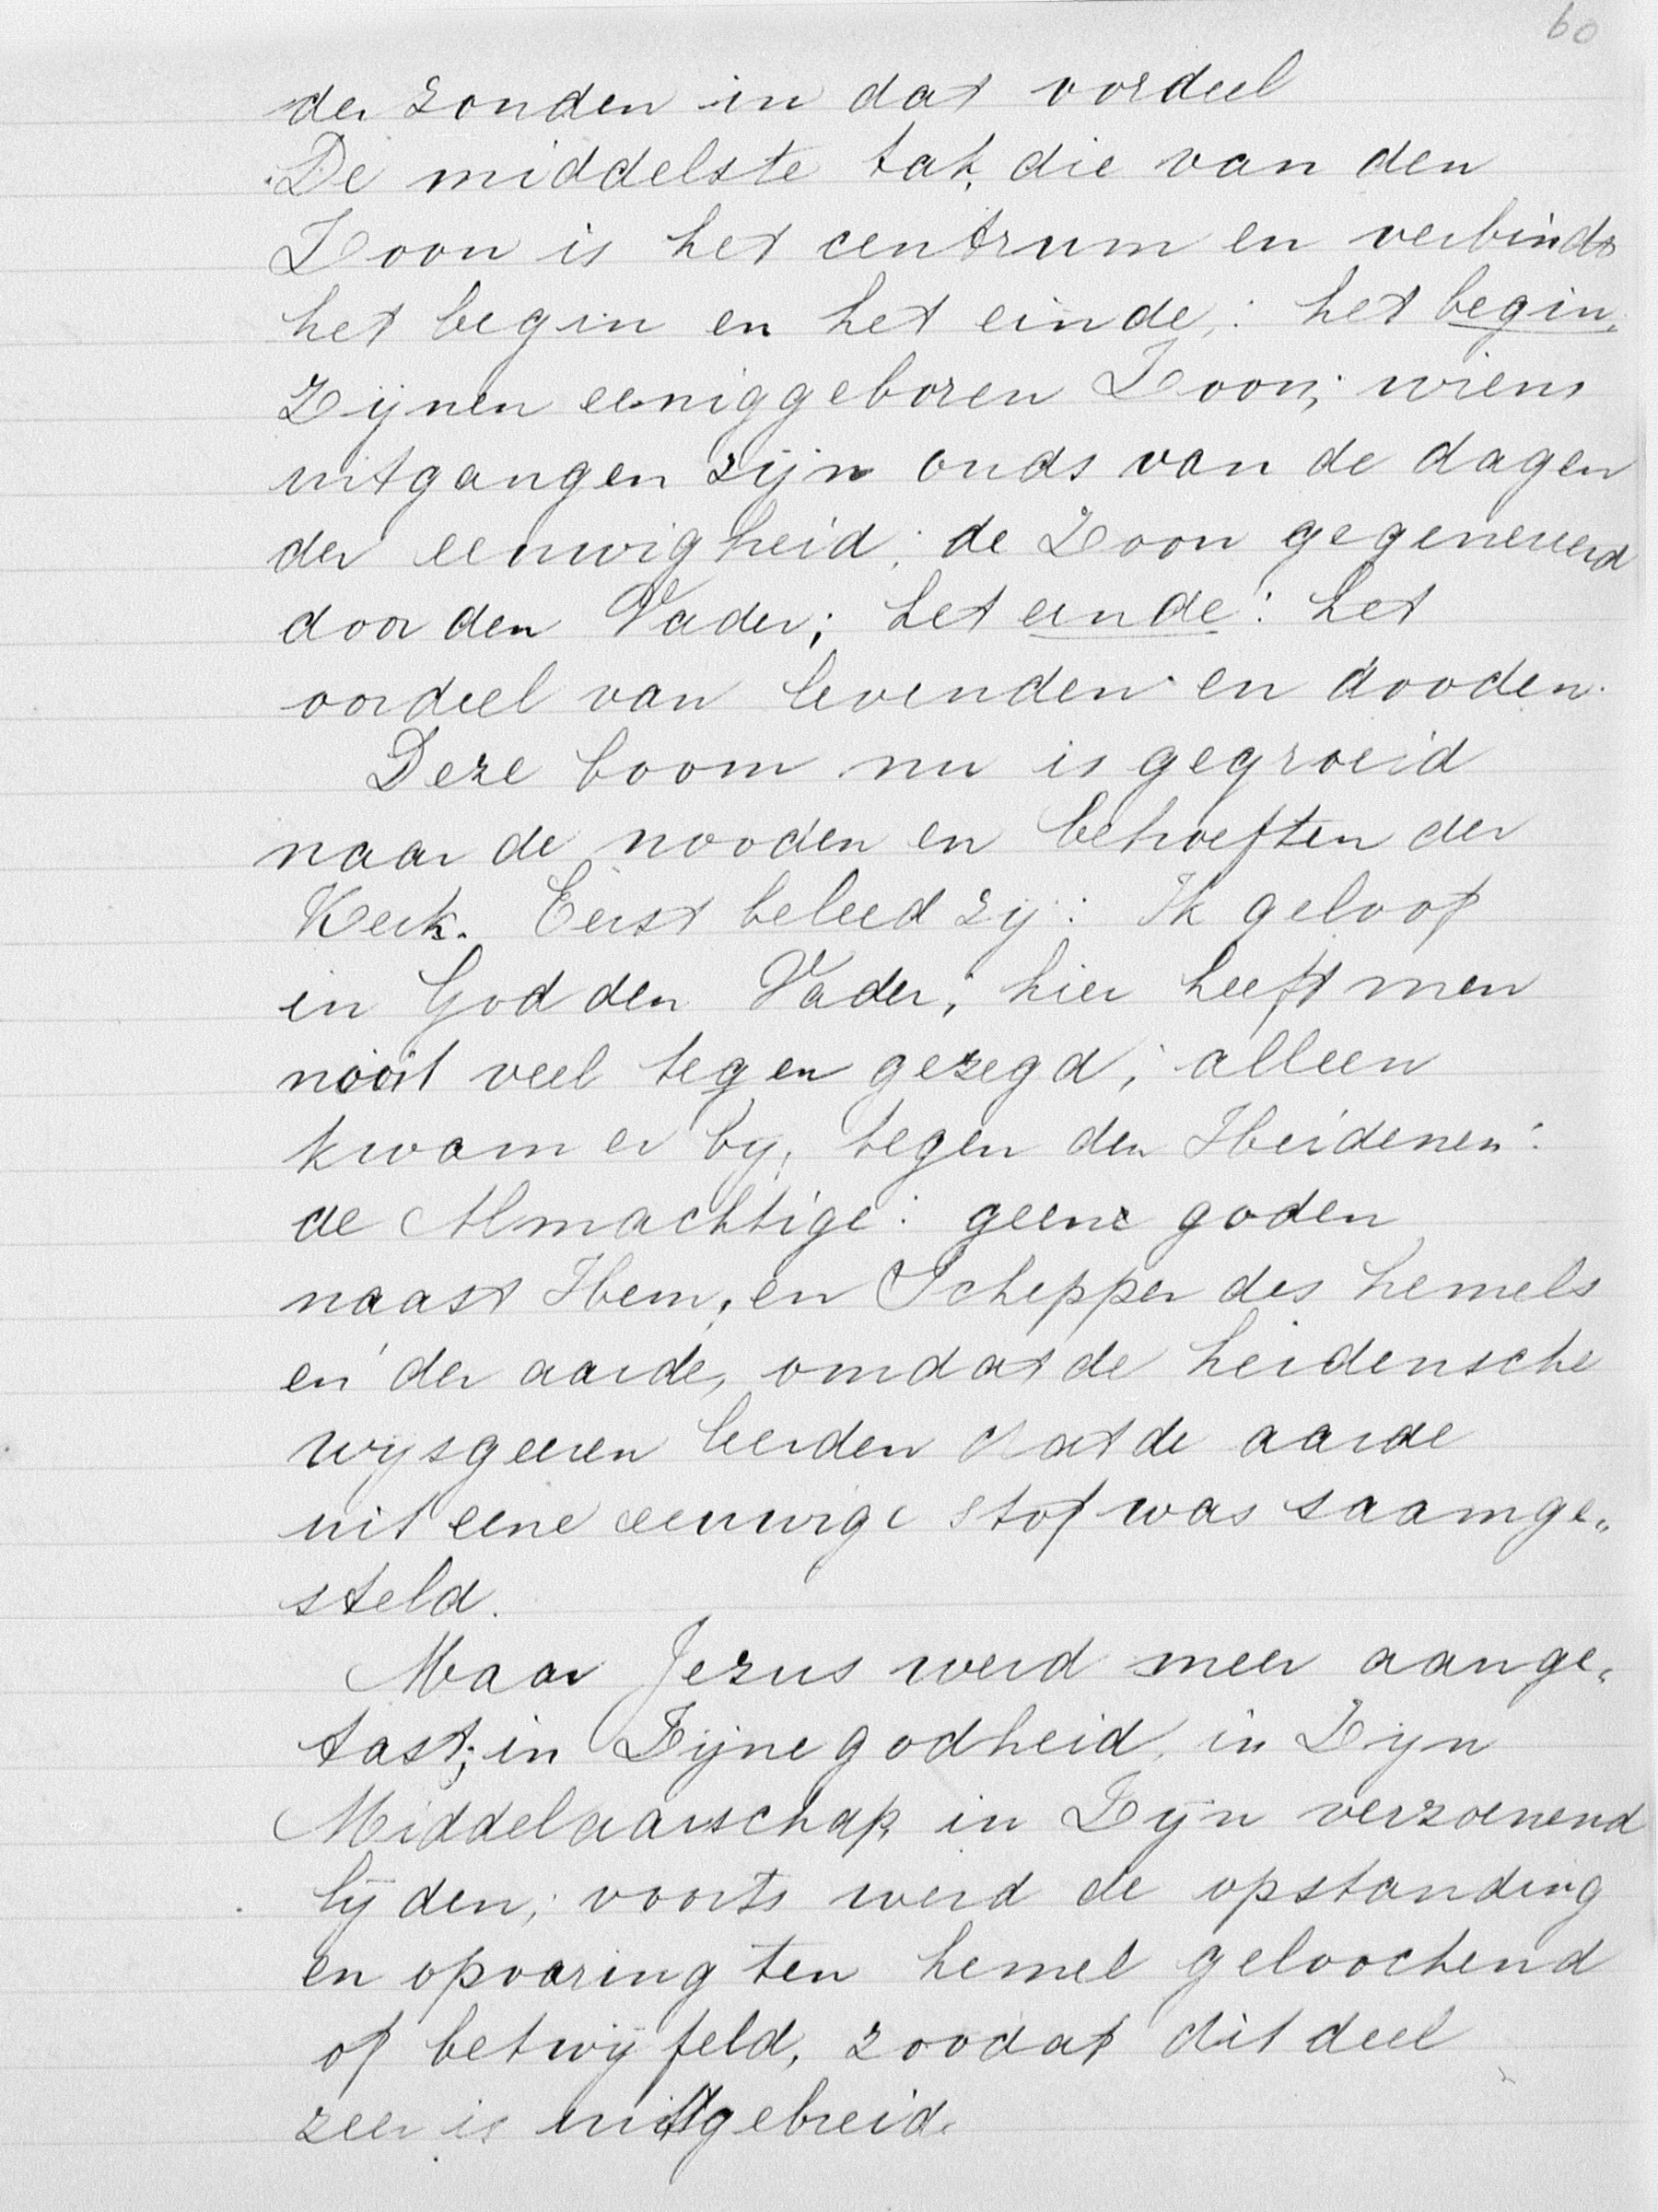 60
der zonden in dat oordeel
De middelste tak, die van den
Zoon is het centrum en verbindt
het begin en het einde; het begin:
Zijnen eeniggeboren Zoon; wiens
uitgangen zijn ouds van de dagen
der eeuwigheid; de Zoon gegenereerd
door den Vader; het einde: het
oordeel van levenden en dooden.
Deze boom nu is gegroeid
naar de nooden en behoeften der
Kerk. Eerst beleed zij: Ik geloof
in God den Vader; hier heeft men
nooit veel tegen gezegd; alleen
kwam er bij, tegen den Heidenen:
de Almachtige: geene goden
naast Hem, en Schepper des hemels
en der aarde, omdat de heidensche
wijsgeeren leerden dat de aarde
uit eene eeuwige stof was saamge„
steld.
Maar Jezus werd meer aange„
tast; in Zijne godheid, in Zijn
Middelaarschap, in Zijn verzoenend
lijden; voorts werd de opstanding
en opvaring ten hemel geloochend
of betwijfeld, zoodat dit deel
zeer is uitgebreid.